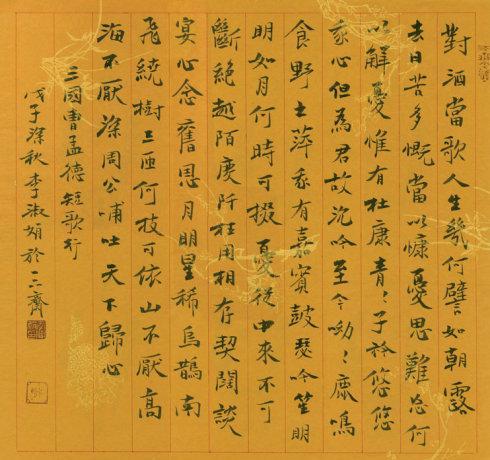 對酒當歌人生幾何譬如朝露
去日苦多慨當以慷憂思難忘何
以解憂惟有杜康青〻子衿悠悠
我心但為君故沉吟至今呦〻鹿鳴
食野之萍我有嘉賓鼓瑟吹笙明
明如月何時可掇憂從中來不可
斷絕越陌度阡枉用相存契闊談
宴心念舊恩月明星稀烏鵲南
飛繞樹三匝何枝可依山不厭高
海不厭深周公哺吐天下歸心
三國曹孟德短歌行
戊子深秋李淑娟於齋